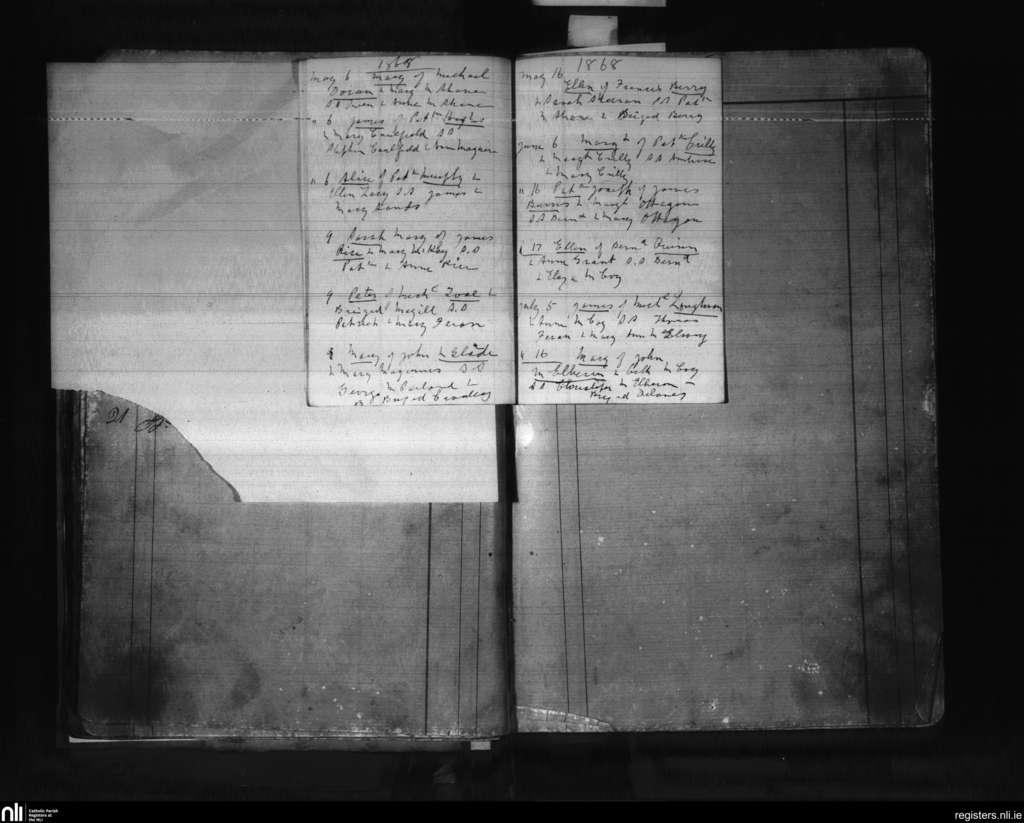 1868
May 6 Mary of Michael
Doran & Mary McShane
SS Owen & Anne McShane
" 6 James of Patk Hughes
& Mary Caulfield SS
Stephen Caulfield & Ann
" 6 Alice of Patk Murphy &
Ellen Lacy SS James &
Mary Hands
9 Sarah Mary of James
Rice & Mary SS
Patk & Anne Rice
9 Peter of Michl &
Bridged Magill SS
Patrick & Mary Feran
9 Mary of John McGlade
& Mary Magennis SS
George McParland &
Briged Bradley
21
1868
May 16
Ellen of Francis Berry
& Sarah SS Patk
McShane & Briged Berry
June 6 Margt of Patk Crilly
& Margt Crilly SS Ambrose
& Mary Crilly
" 16 Patk Joseph of James
Burns & Margt O'Hagan
SS Bernd & Mary O'Hagan
" 17 Ellen of Bernd Quinn
& Anne Grant SS Bernd
& Eliza McCoy
July 5 James of Michl Loughran
& Anne McCoy SS Thomas
Feran & Mary Ann
" 16 Mary of John
McElheron & Cath McCoy
SS McElheron
Briged Delaney
nli
Catholic Parish
Registers at
the NLI
registers.nli.ie